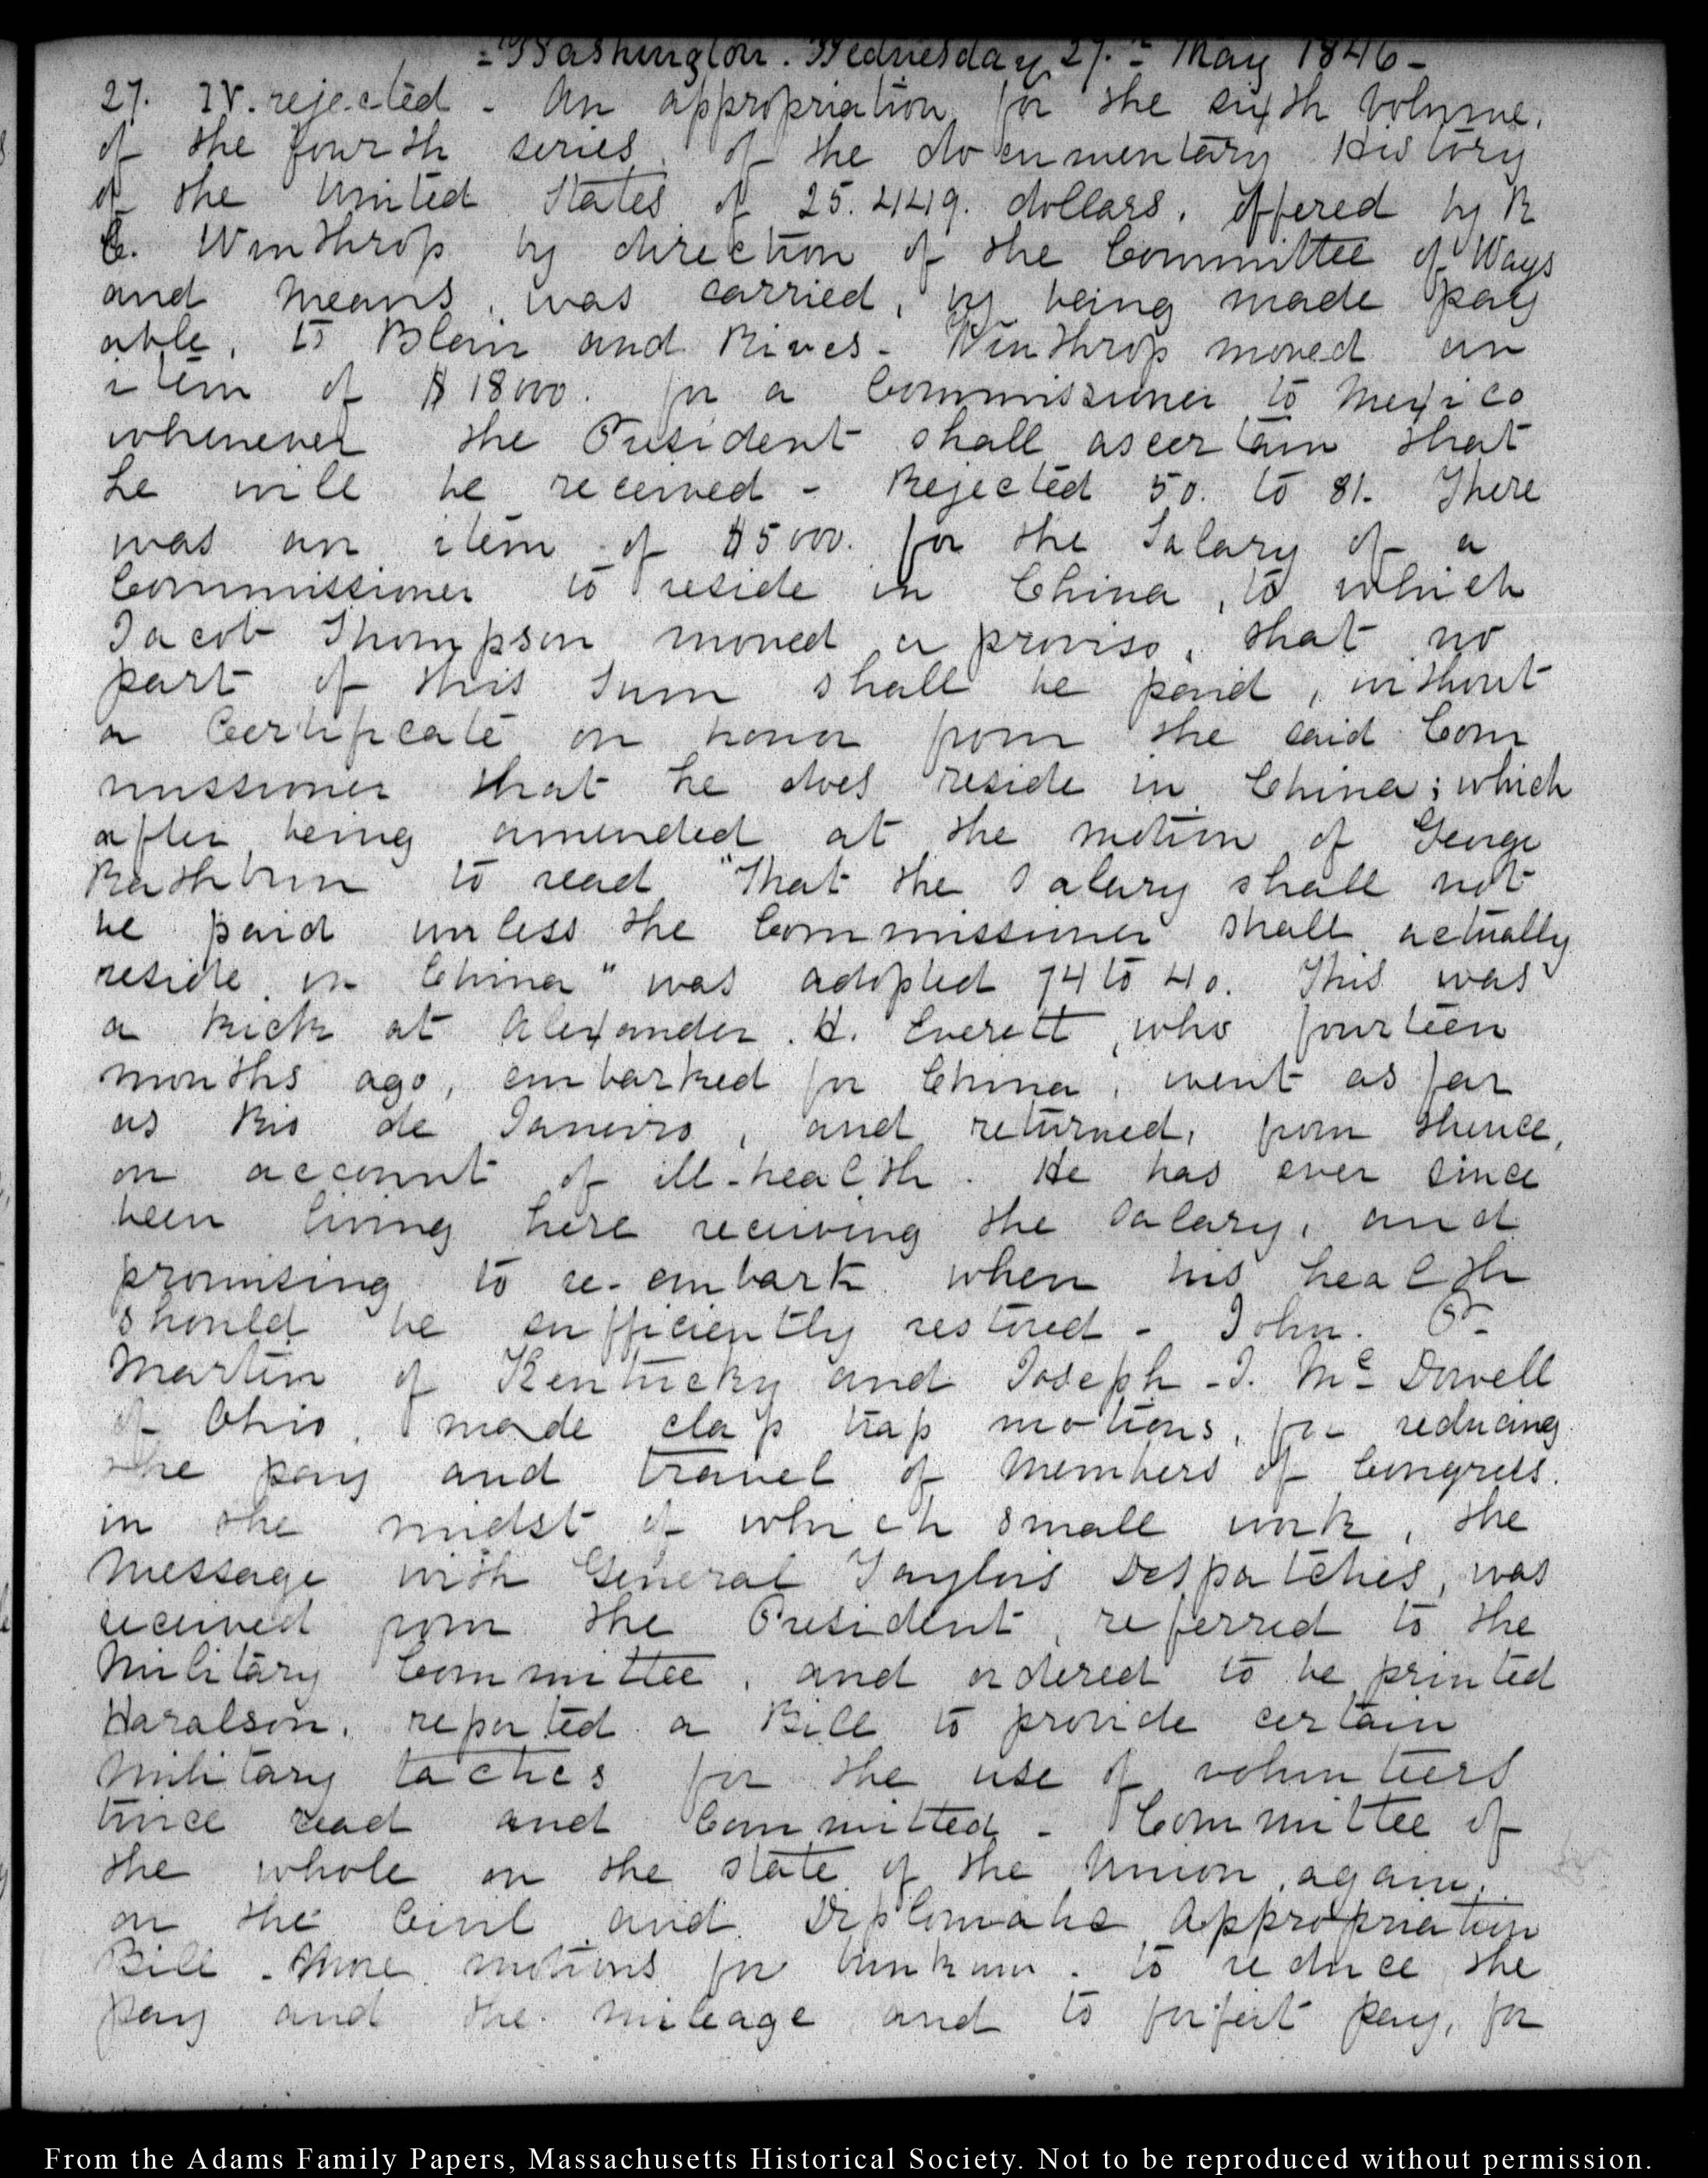 Washington. Wednesday 27.th May 1846-
27. IV. rejected - An appropriation for the sixth volume,
of the fourth series, of the documentary History
of the United States of 25.449. dollars, offered by R
C. Winthrop by direction of the Committee of Ways
and Means, was carried, by being made pay
able, to Blair and Rives - Winthrop moved an
item of $18000. for a Commissioner to Mexico
whenever the President shall ascertain that
he will be received - Rejected 50. to 81. There
was an item of $5000. for the Salary of a
Commissioner to reside in China, to which
Jacob Thompson moved a proviso, that no
part of this Sum shall be paid, without
a Certificate on honor from the said Com
missioner that he does reside in China; which
after being amended at the motion of George
Rathbun to read "That the Salary shall not
be paid unless the Commissioner shall actually
reside in China" was adopted 74 to 40. This was
a kick at Alexander. H. Everett, who fourteen
months ago, embarked for China, went as far
as Rio de Janeiro, and returned, from thence,
on account of ill-health. He has ever since
been living here receiving the Salary, and
promising to re-embark when his health
should be sufficiently restored - John. P.
Martin of Kentucky and Joseph - J. Mc Dowell
of Ohio, made clap trap motions, for reducing
the pay and travel of Members of Congress.
in the midst of which small work, the
Message with General Taylor's Despatches, was
received from the President, referred to the
Military Committee, and ordered to be printed
Haralson, reported a Bill to provide certain
Military tactics for the use of volunteers
twice read and Committed - Committee of
the whole on the state of the Union, again,
on the Civil and Diplomatic Appropriation
Bill - More motions for bunkum - to reduce the
pay and the mileage and to forfeit pay, for
From the Adams Family Papers, Massachusetts Historical Society. Not to be reproduced without permission.